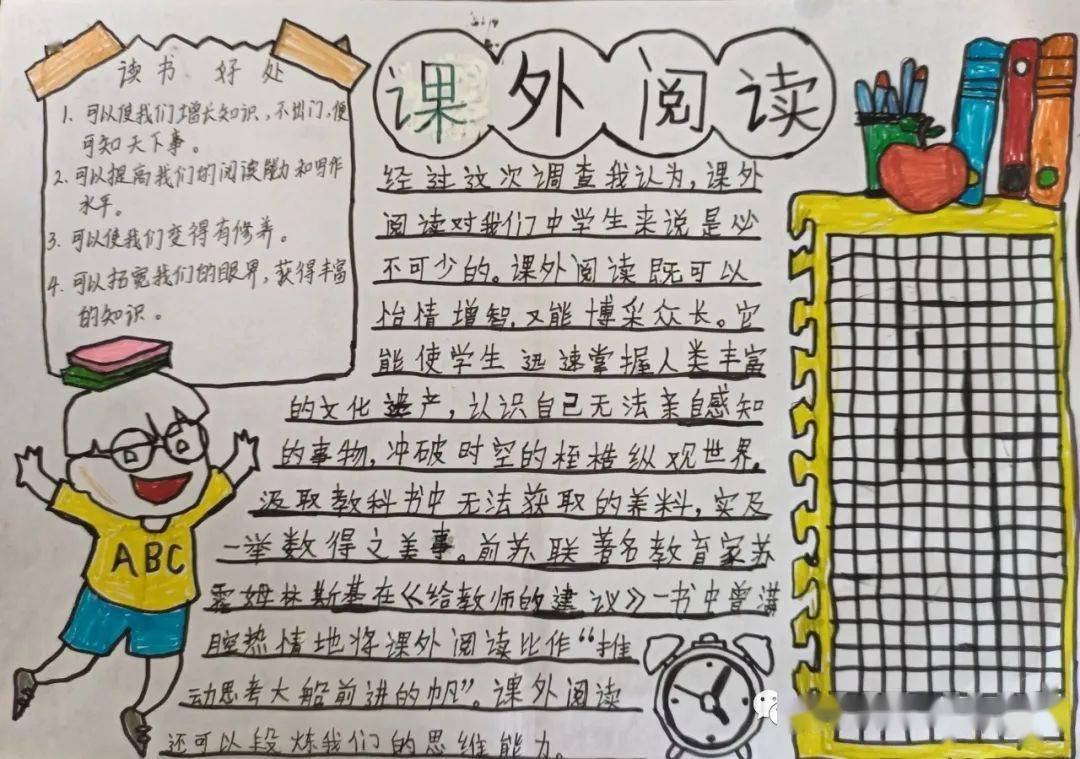 读书 好处
1. 可以使我们增长知识，不出门，便
可知天下事。
2. 可以提高我们的阅读能力和写作
水平。
3. 可以使我们变得有修养。
4. 可以拓宽我们的眼界，获得丰富
的知识。
课外阅读
经过这次调查我认为，课外
阅读对我们中学生来说是必
不可少的。课外阅读既可以
怡情增智，又能博采众长。它
能使学生迅速掌握人类丰富
的文化遗产，认识自己无法亲自感知
的事物，冲破时空的桎梏纵观世界。
汲取教科书中无法获取的养料，实及
一举数得之美事。前苏联著名教育家苏
霍姆林斯基在《给教师的建议》一书中曾满
腔热情地将课外阅读比作“推
动思考大船前进的帆”。课外阅读
还可以段炼我们的思维能力。
ABC